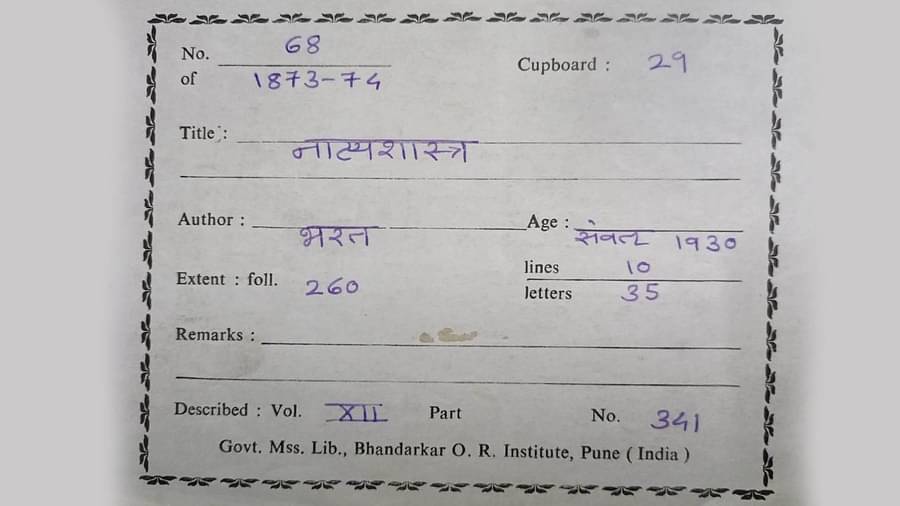 No. 68
of 1873-74 Cupboard : 29
Title : नाट्यशास्त्र
Author : भरत Age : संवत् 1930
Extent : foll. 260 lines 10
letters 35
Remarks :
Described : Vol. XII Part No. 341
Govt. Mss. Lib., Bhandarkar O. R. Institute, Pune ( India )